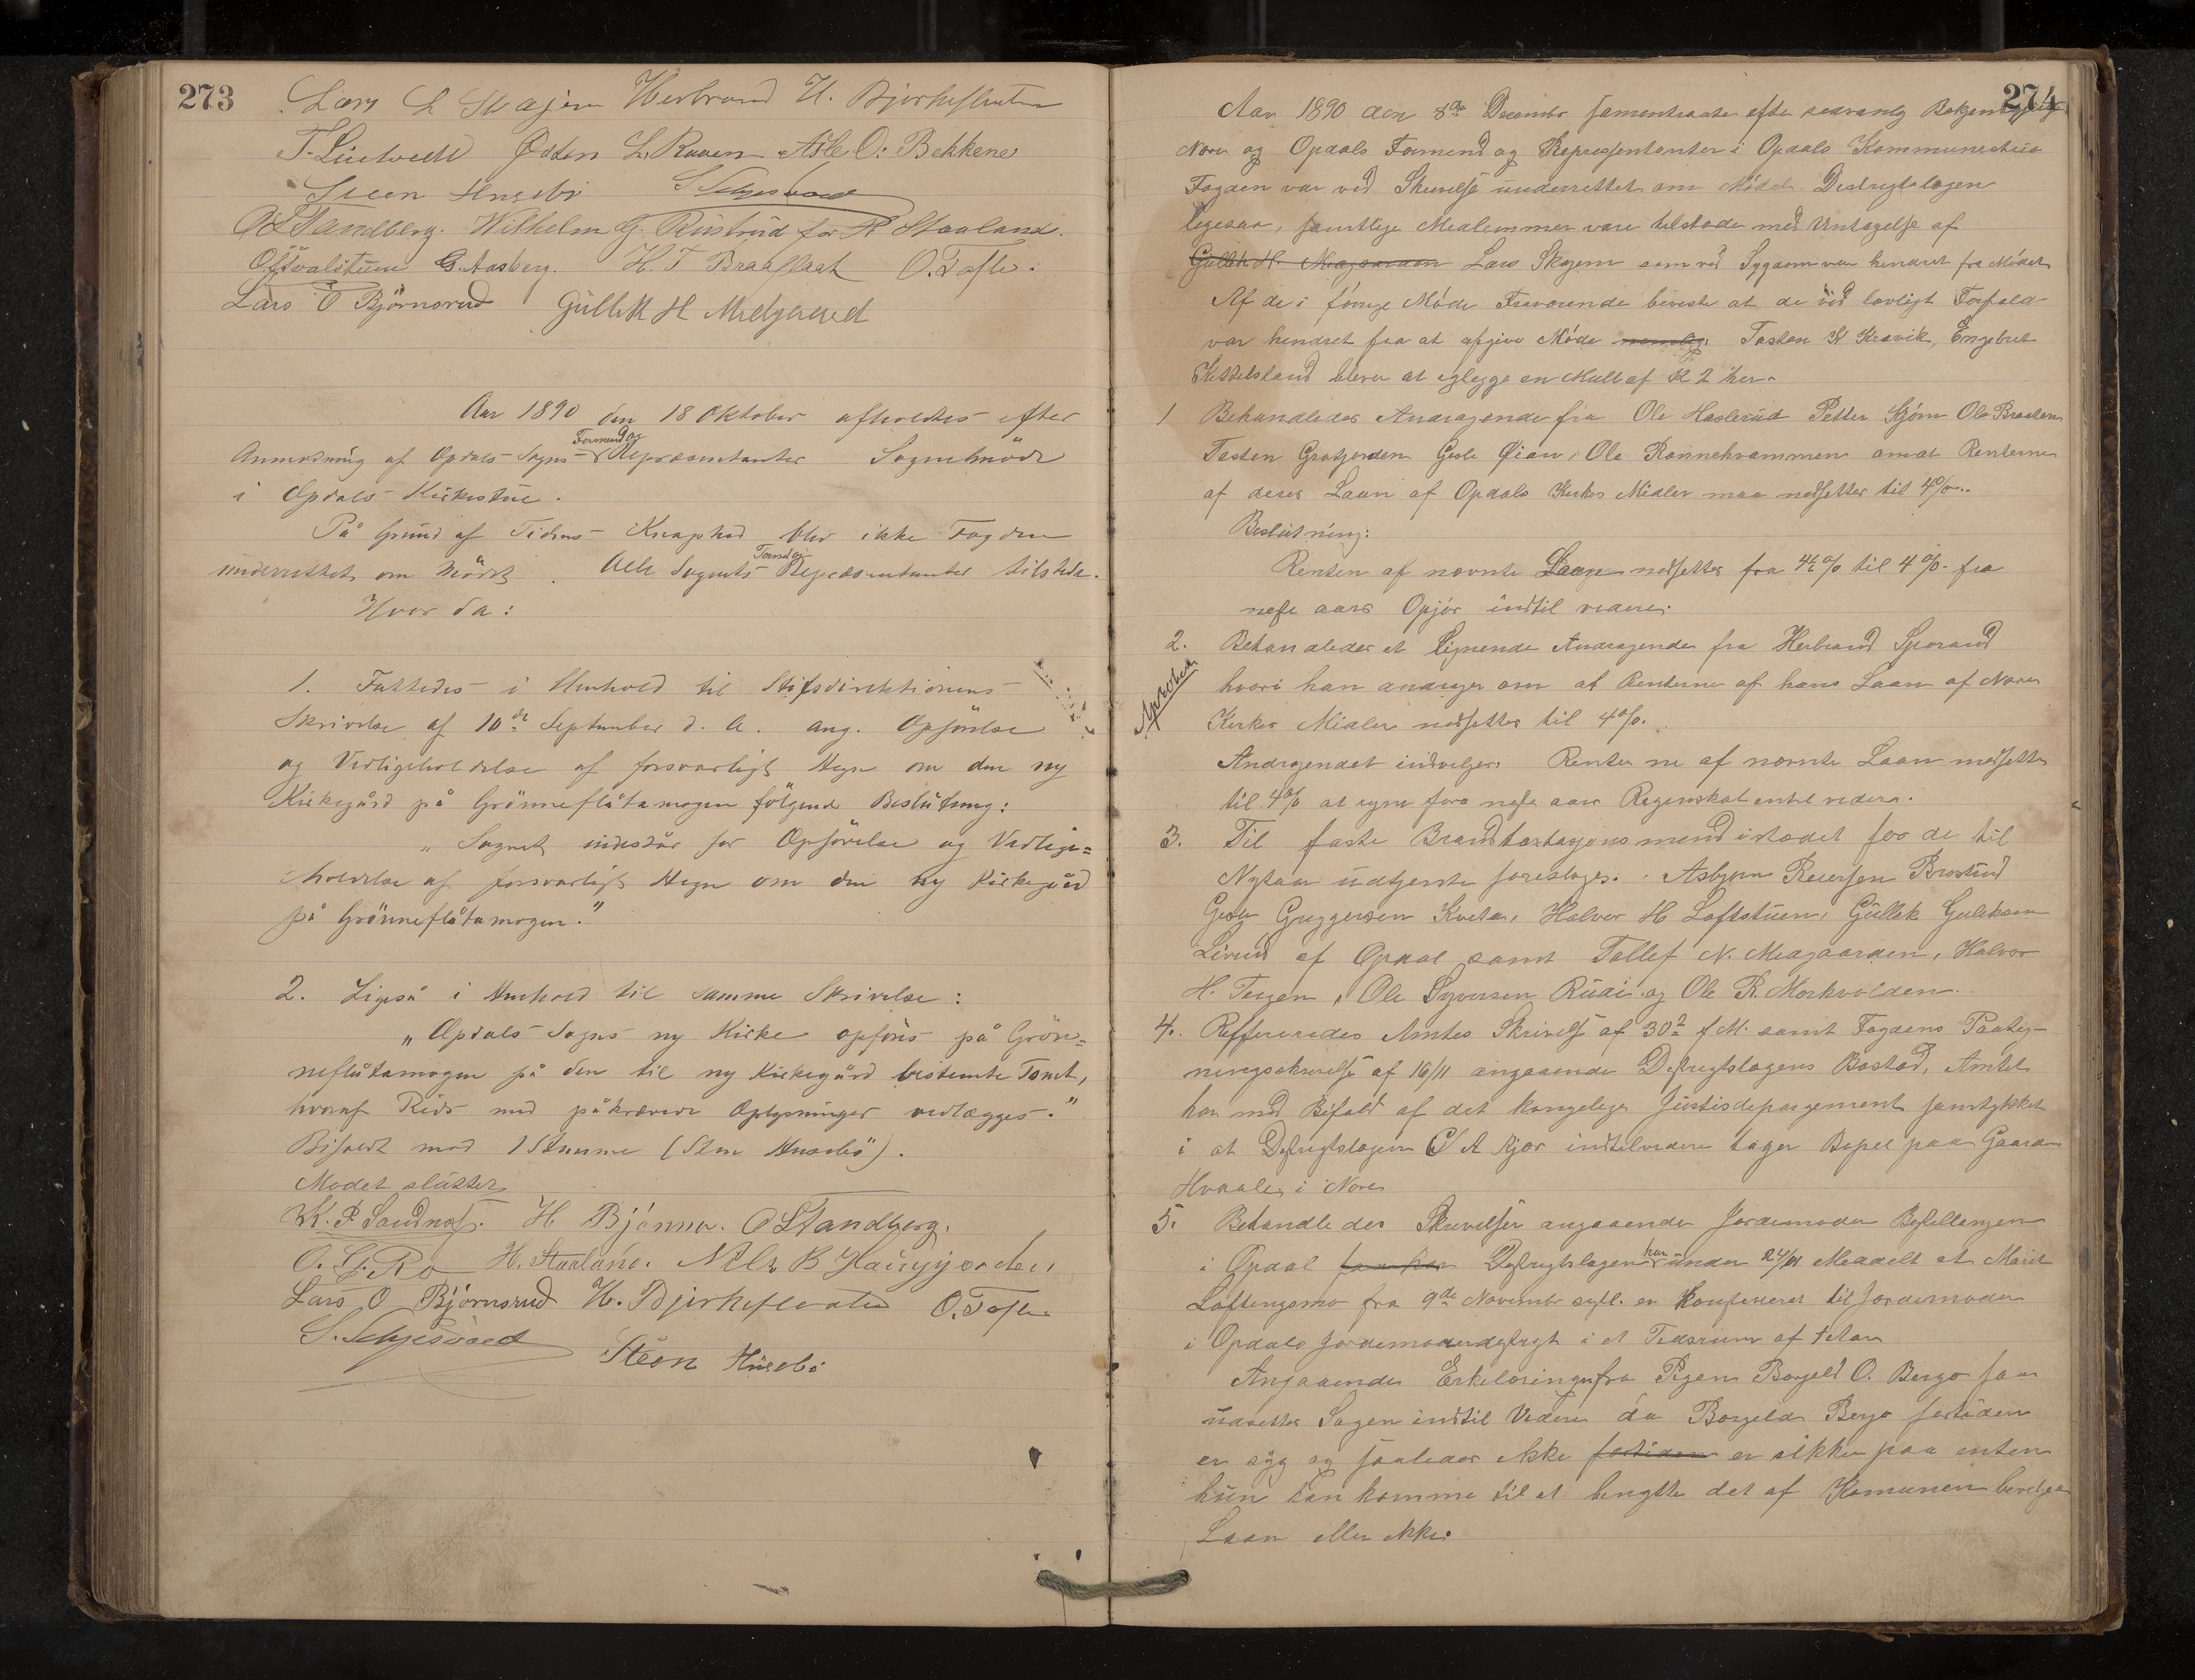 273
Lars L Skajem Herbrand H. Bjerkeflaaten
T. Liutvedt Østen L. Raaen Asle O. Bekkene
Steen Husebö
O L Tandberg. Wilhelm G. Rustrud for H Staaland.
G. Aasberg. H. T Braaflaat O. Tofte.
Lars O Björnsrud Gullik H Medgaard
Aar 1890 den 18 Oktober afholdtes efter
Anmodning af Opdals Sogns Formend og Repræsentanter Sognemöde
i Opdals Kirkestue.
På Grund af Tidens Knaphed blev ikke Fogden
underrettet om Mödet. Alle Sognets Formend og Repræsentanter tilstede.
Hvor da:
1. Fattedes i Henhold til Stiftsdirektionens
Skrivelse af 10de September d. A. ang. Opförelse
og Vedligeholdelse af forsvarligt Hegn om den ny
Kirkegård på Grönneflåtamogen fölgende Beslutning:
„Sognet indestår for Opförelse og Vedlige=
holdelse af forsvarligt Hegn om den ny Kirkegård
på Grönneflåtamogen."
2. Ligeså i Henhold til samme Skrivelse:
„Opdals Sogns ny Kirke opföres på Grön=
neflåtamogen på den til ny Kirkegård bestemte Tomt,
hvoraf Rids med påkrævede Oplysninger vedlægges."
Bifaldt mod 1 Stemme (Sten Husebö).
Mødet sluttet
K. P. Sandnæs. H Bjönnes. O L Tandberg.
O. G. Ro H. Staaland. Nils B Hauggjorden
Lars O Björnsrud H. Bjerkeflaaten O. Tofte
Steen Husebö
274
Aar 1890 den 8de December sammentraate efter sedvanlig Bekjentgjørelse
Nore og Opdals Formend og Representanter i Opdals Kommunestue
Fogden var ved Skrivelse underrettet om Mødet Destrigtslægen
legesaa, samtlige Medlemmer vare tilstede med Untagelse af
Gullik H. Medgaarden Lars Skajem som ved Sygdom var hendret fra Mødet
Af de i forrige Møde Fraværende beviste at de ved lovligt Forfald
var hendret fra at afgive Møde nemlig. Tosten K Kravik, Engebret
Kittelsland bleve at eglegge en Mult af K 2 her.
1 Behandledes Andragende fra Ole Haslerud Petter Gjörn Ole Braaten
Tosten Grotjorden Gisle Øian, Ole Rønnehvammen om at Renterne
af deres Laan af Opdals Kirkes Midler maa nedsettes til 4%.
Beslutning:
Renten af nævnte Laan nedsettes fra 4½% til 4%. fra
neste aars Opjör indtil videre.
2. Behandledes et lignende Andragende fra Herbrand Sporand
hvori han andrager om at Renterne af hans Laan af Nores
Kirkes Midler nedsettes til 4%.
Aproberet
Andragendet indvelges: Renterne af nævnte Laan nedsettes
til 4% at regne fra neste aars Regenskab entil videre.
3. Til faste Brandtaxtasjonsmend istedet for de til
Nytaar udtjente foreslages. Asbjørn Reiersen Brostrud
Gisle Guggersen Kvetas, Halvor H Loftstuen, Gullek Guleksen
Liverud af Opdal samt Tollef N. Medgaarden, Halvor
H. Teigen, Ole Syversen Rudi og Ole R. Morkvolden.
4. Reffereredes Amtes Skrivelse af 30te f M. samt Fogdens Paateg-
ningsskrivelse af 16/11 angaaende Destrigtslægens Bosted, Amtet
har med Bifald af det kongelige Justisdepargement samtykket
i at Destrigtslægen A Kjær indtilvidere tager Bopel paa Gaarden
Hvaale i Nore
5. Behandledes Skrivelser angaaende Jordemoder Bestillingen
i Opdal Destrigtslægen har under 24/11 Meddelt at Marit
Loftengsmo fra 9de November er Konstitueret til Jordemoder
i Opdals Jordemoderdistrigt i et Tidsrum af 1 et Aar
Angaaende Erkeleringen fra Pigen Borgeld O. Bergo saa
udsettes Sagen indtil Videre da Borgeld Bergo fortiden
er syg og saaledes ikke fortiden er sikker paa enten
hun kan komme til at benytte det af Komunen bevelgede
Laan eller ikke.